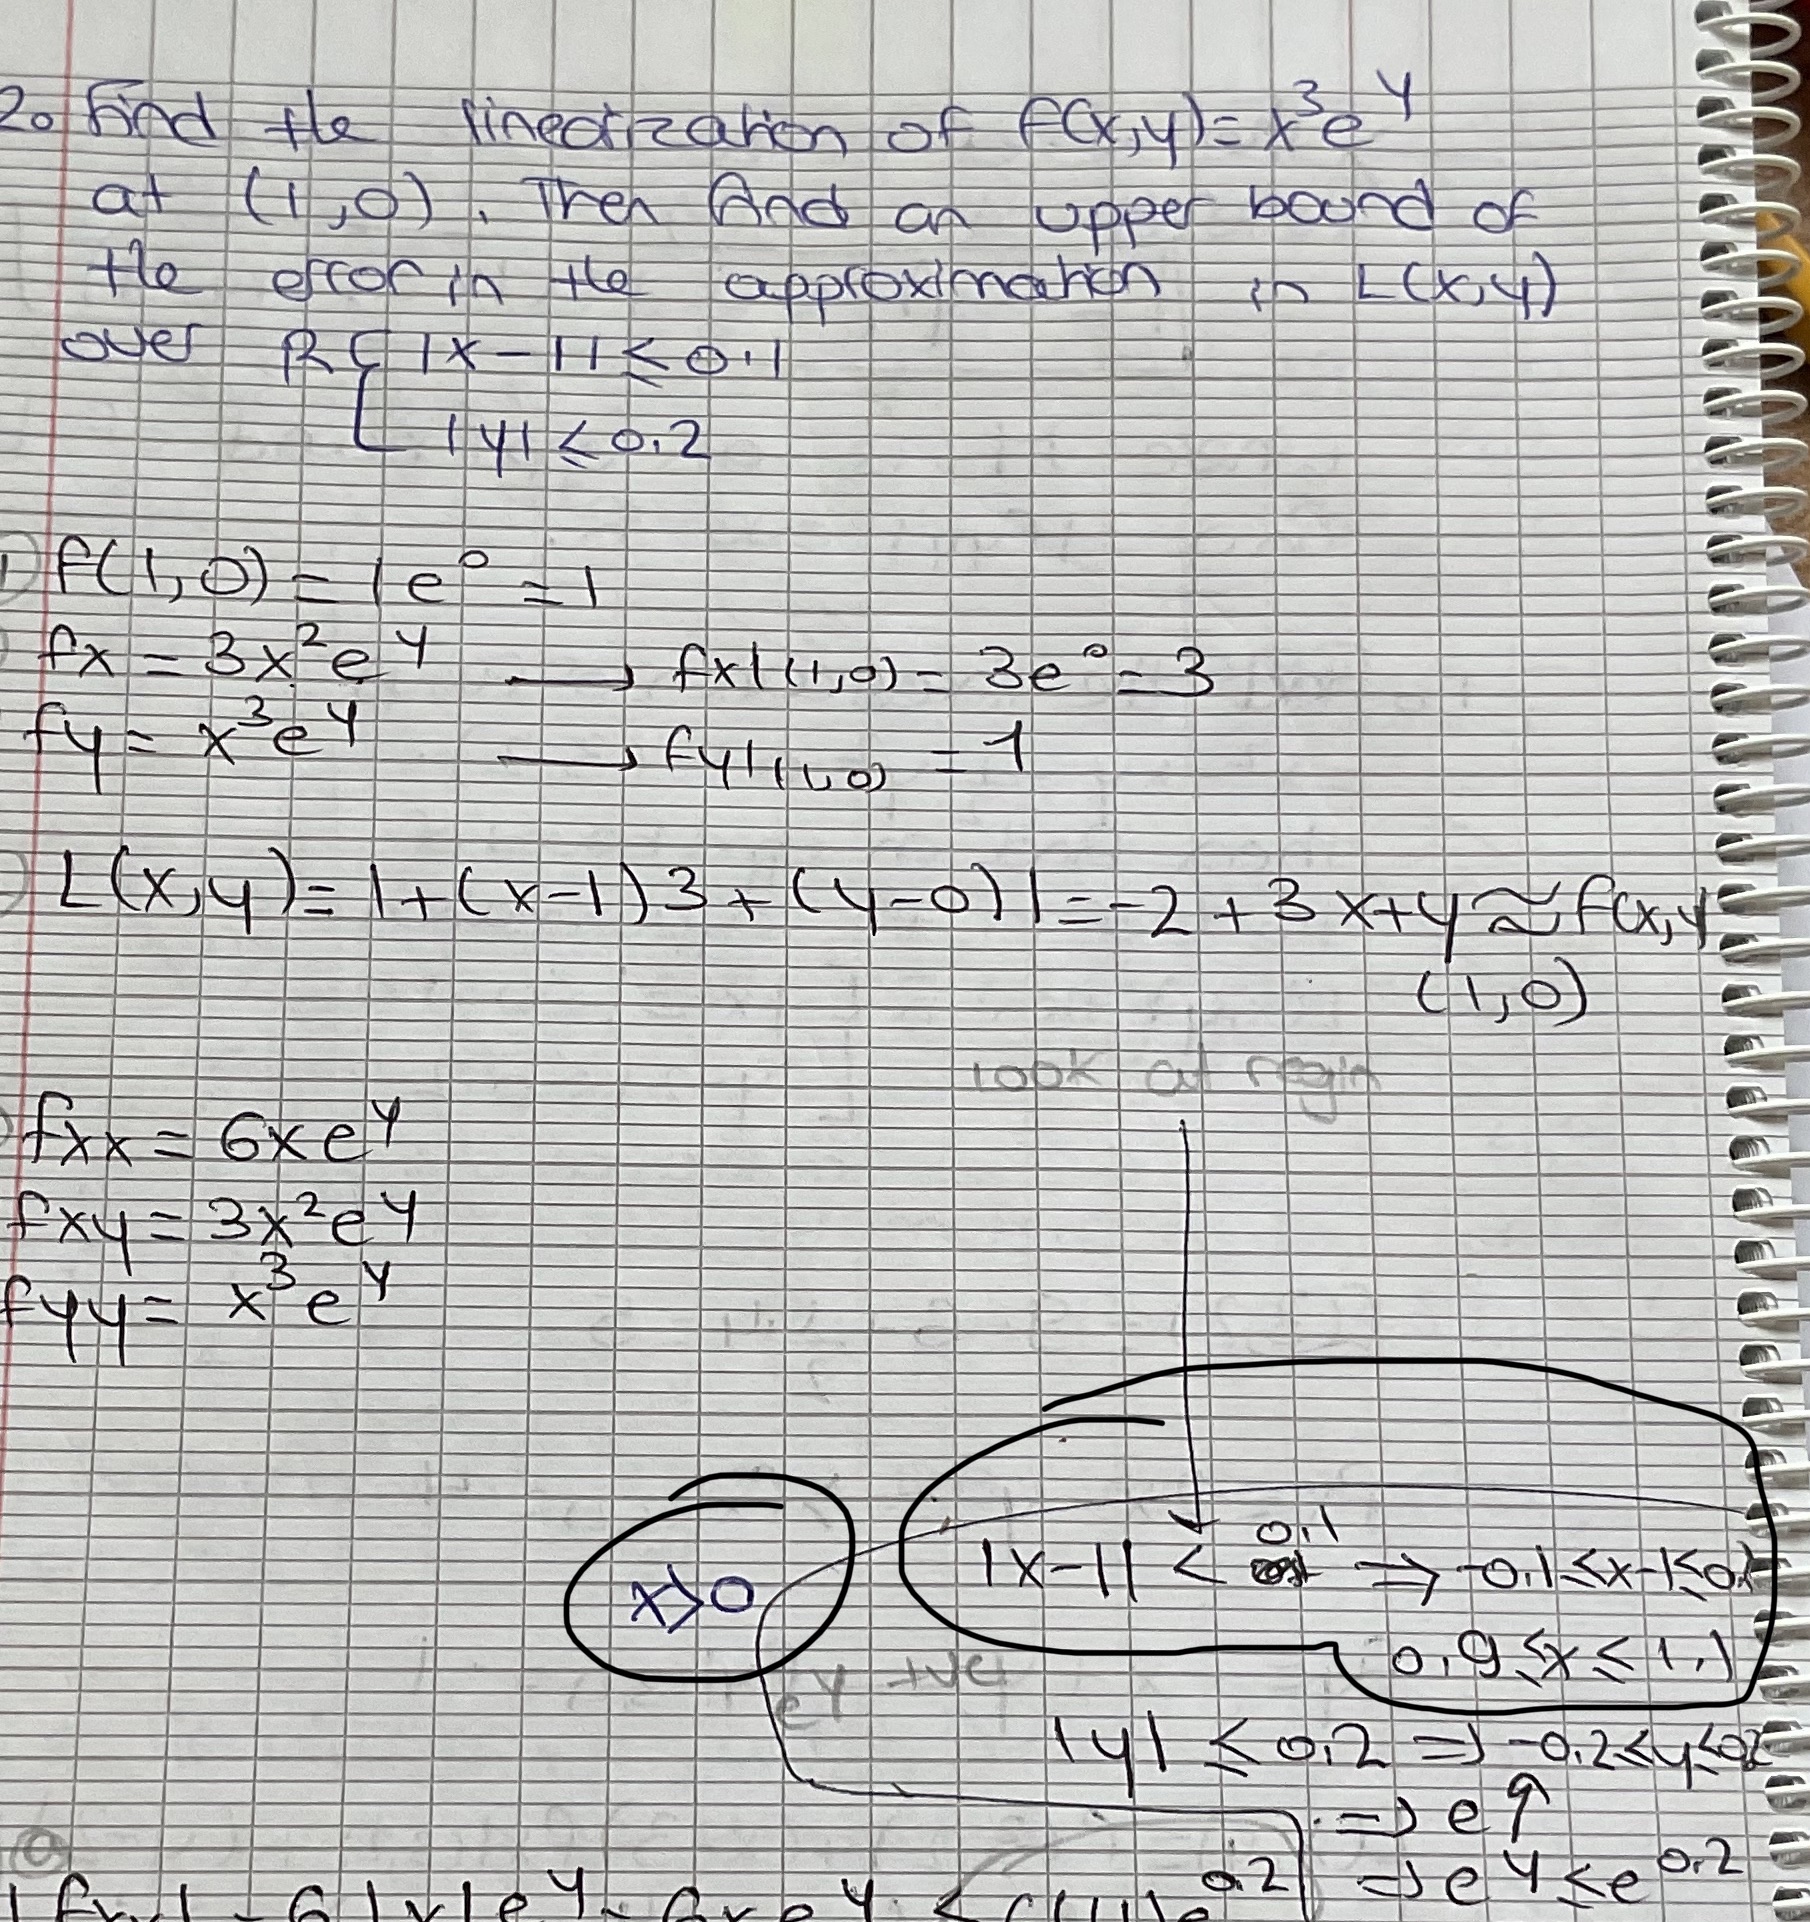 20 find the linearization of f(x,y)= x³e^y
at (1,0). Then find an upper bound of
the error in the approximation in L(x,y)
over R { |x-1| ≤ 0.1
|y| ≤ 0.2
1) f(1,0) = 1e⁰ = 1
fx = 3x²e^y → fx|(1,0) = 3e⁰ = 3
fy = x³e^y → fy|(1,0) = 1
L(x,y) = 1+(x-1)3+(y-0)1 = -2+3x+y ≈ f(x,y
(1,0)
look at regin
fxx = 6xe^y
fxy = 3x²e^y
fyy = x³e^y
x>0
|x-1| < 0.1 ⇒ -0.1≤x-1≤0.1
0.9≤x≤1.1
e^y +ve
|y| ≤ 0.2 ⇒ -0.2≤y≤0.2
⇒ e↑
⇒ e^y ≤ e^0.2
|fxx| = 6|x|e^y = 6xe^y ≤ 6(1.1)e^0.2